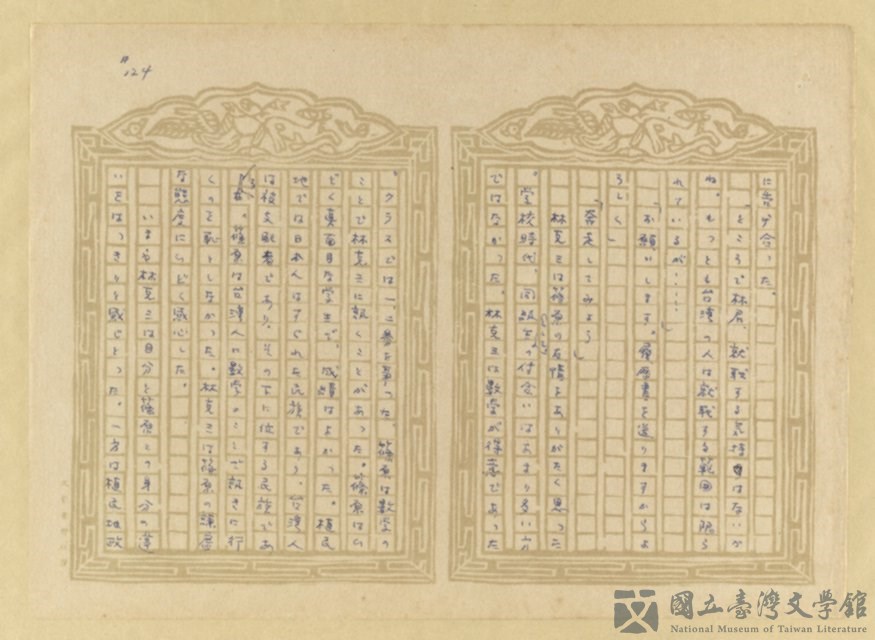 #124
に音が合った。
「ところで林君、就職する気持はないか
ね。もっとも台湾の人は就職する範囲は限ら
れているが……」
「お願いします。履歴書を送りますからよ
ろしく」
「奔走してみよう」
林克三は篠原の友情をありがたく思った
。学校時代、同級生の付合いはあまり長い方
ではなかった。林克三は数学が得意であった
。クラスでは一、二番を争った。篠原は数学の
ことで林克三に訊くことがあった。篠原はひ
どく真面目な学生で、成績はよかった。植民
地では日本人はすぐれた民族であり、台湾人
は被支配者であり、その下に位する民族であ
る。篠原は台湾人に数学のことで訊きに行
くのを恥としなかった。林克三は篠原の謙虚
な態度にひどく感心した。
いまも林克三は自分と篠原との身分の違
いをはっきりと感じとった。一方は植民地政
國立臺灣文學館
National Museum of Taiwan Literature